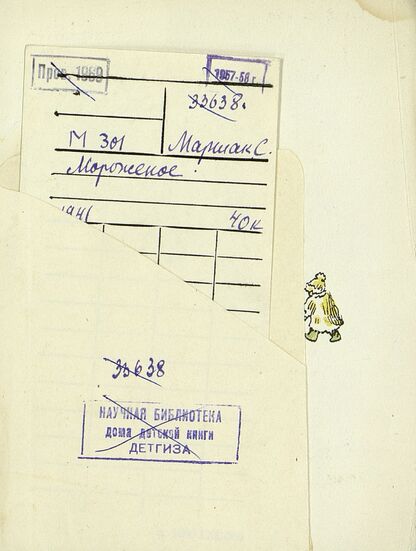 Пров. 1969
1957-58 г.
33638.
М 301
Маршак С.
Мороженое.
1941
40к
33638
НАУЧНАЯ БИБЛИОТЕКА
дома детской книги
ДЕТГИЗА